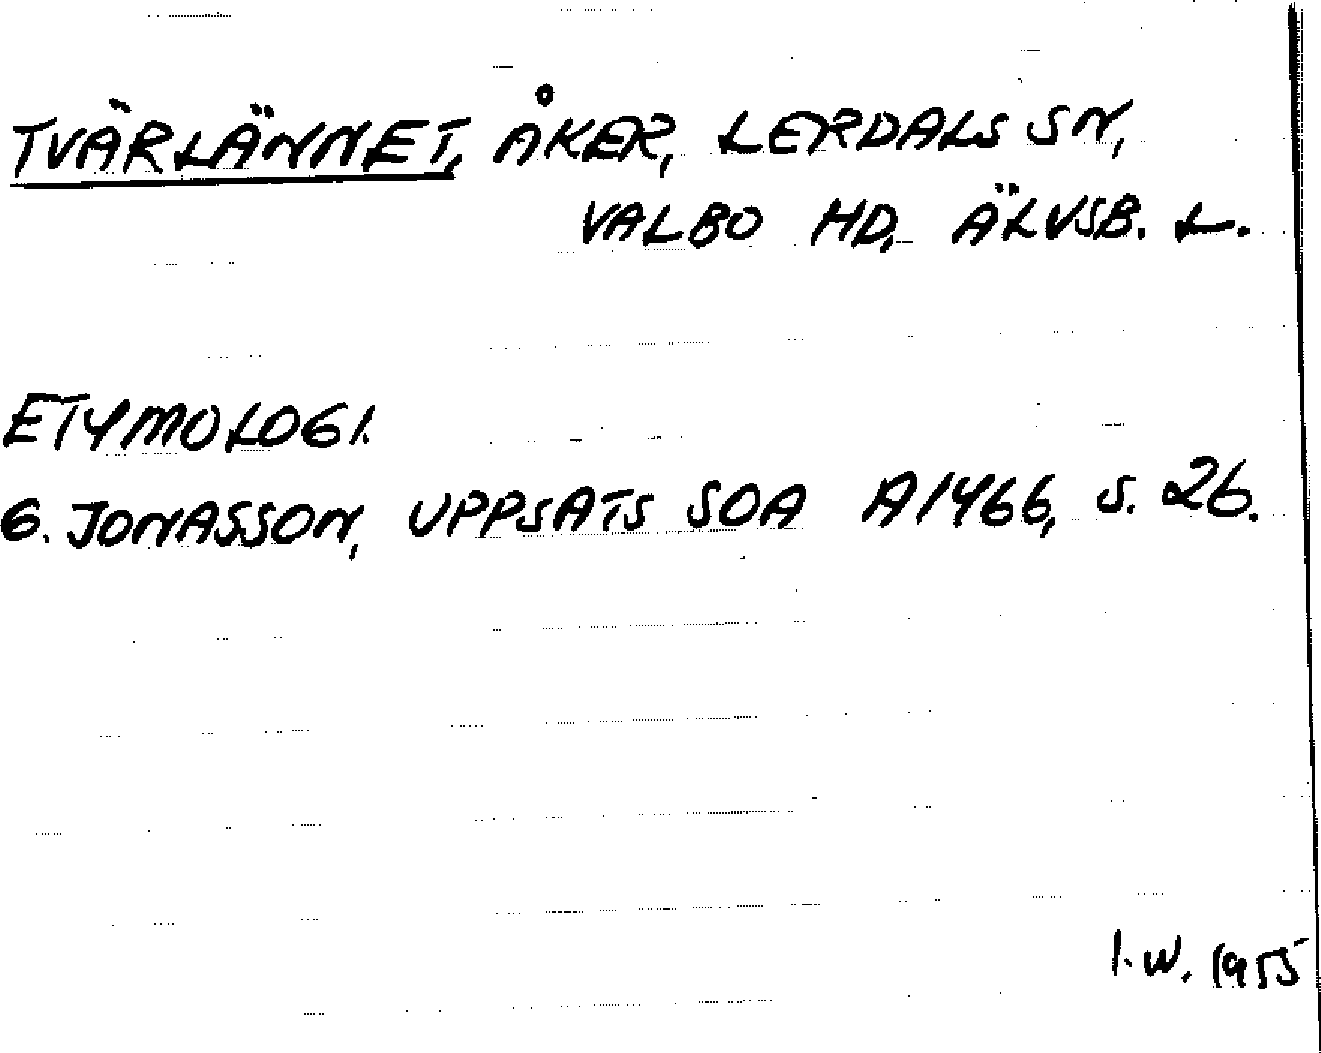 TVÄRLÄNNET, ÅKER, LERDALS SN,
VALBO HD, ÄLVSB. L.
ETYMOLOGI.
G. JONASSON, UPPSATS SOA A1466, S. 26.
I.W. 1955